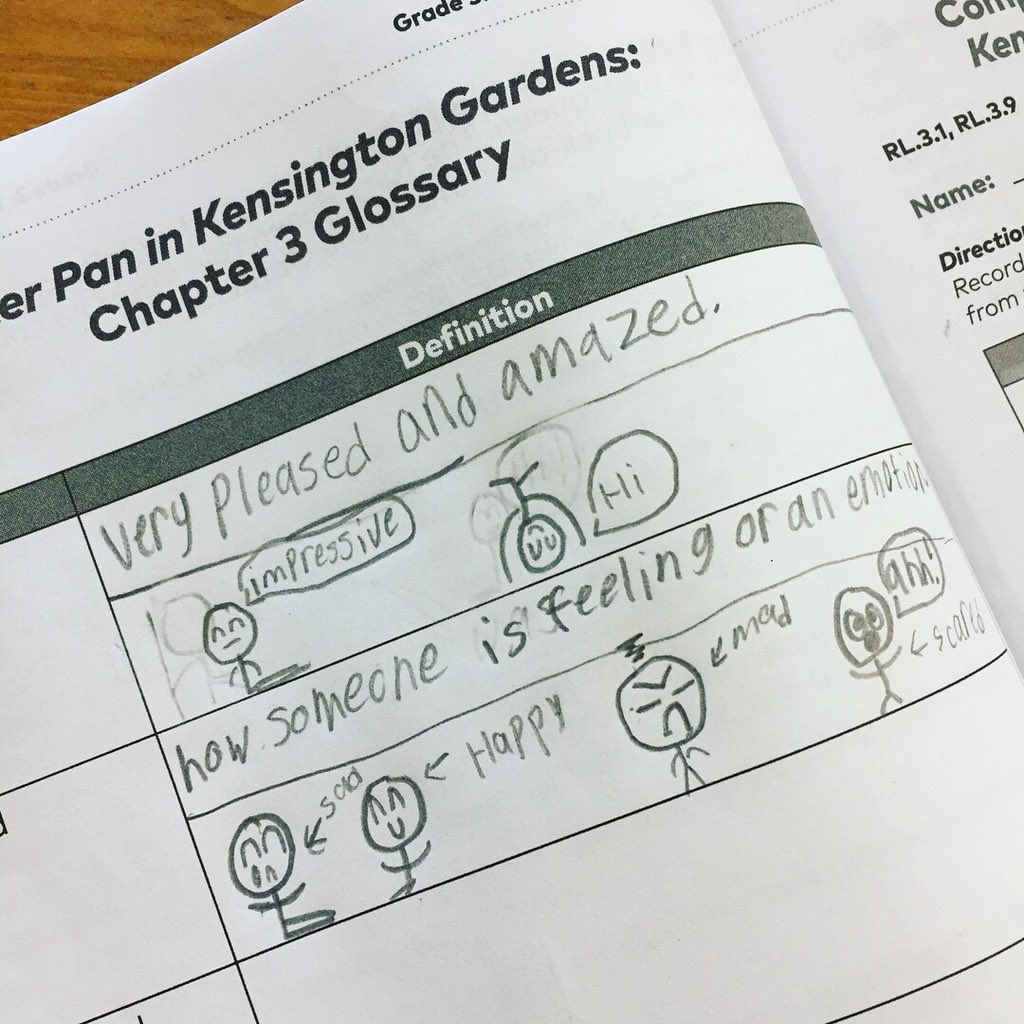 Grade
er Pan in Kensington Gardens:
Chapter 3 Glossary
Definition
very pleased and amazed.
impressive
Hi
how someone is feeling or an emotion.
sad
Happy
mad
ahh!
scared
Com
Ken
RL.3.1, RL.3.9
Name:
Direction
Record
from